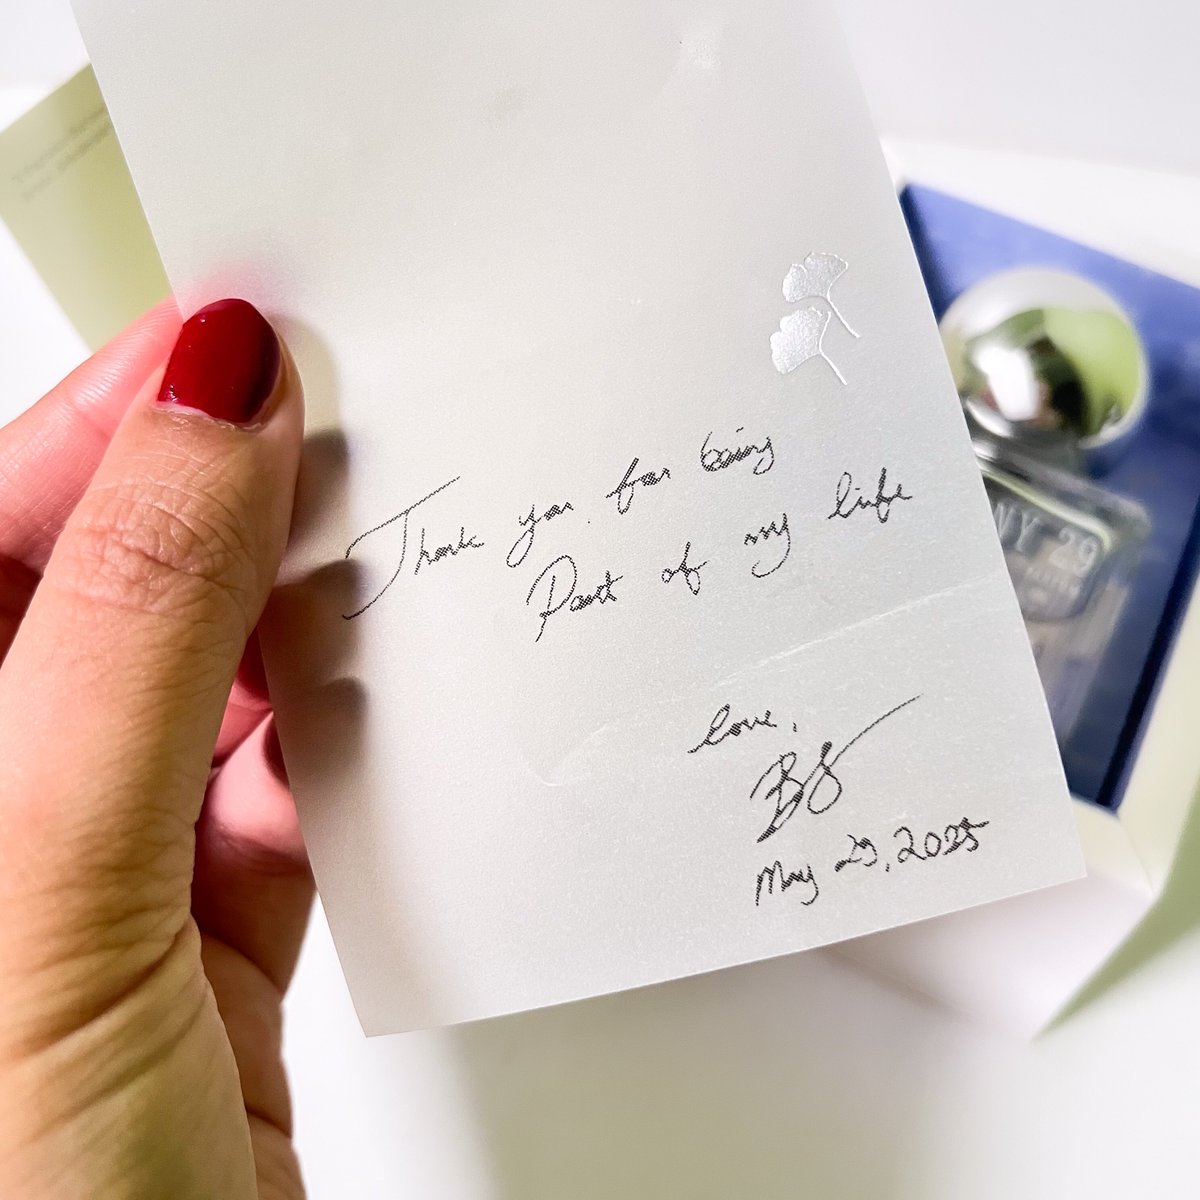 Thank you for being
Part of my life
love,
By
May 29, 2025
NY 29